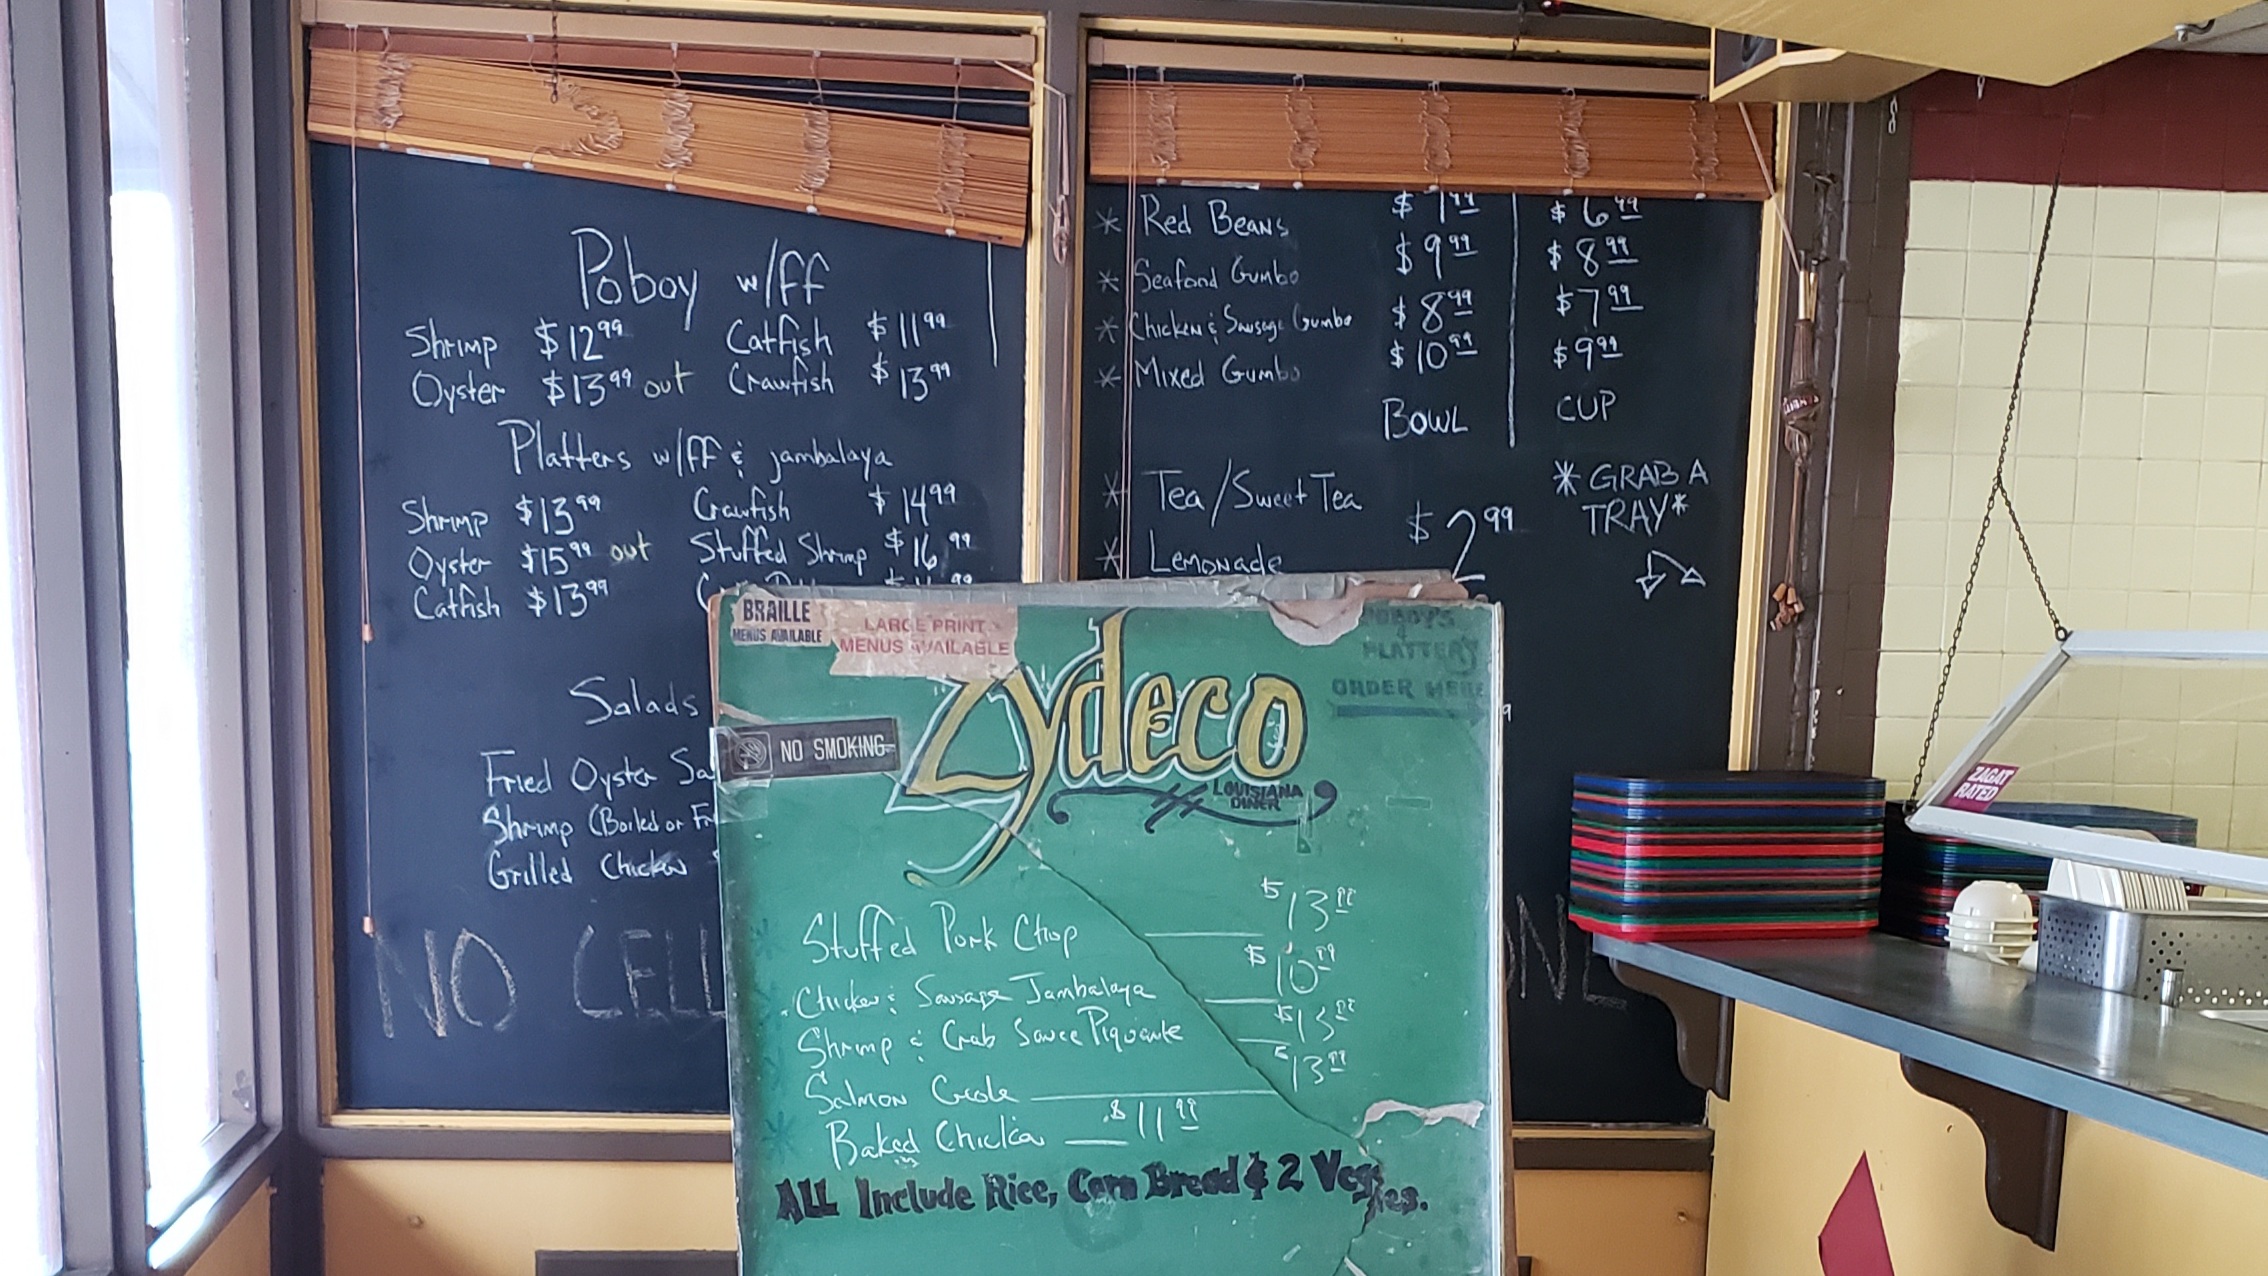 Poboy w/ff
Shrimp $12.99 Catfish $11.99
Oyster $13.99 out Crawfish $13.99
Platters w/ff & jambalaya
Shrimp $13.99 Crawfish $14.99
Oyster $15.99 out Stuffed Shrimp $16.99
Catfish $13.99
Salads
Fried Oyster Sa
Shrimp (Boiled or Fr
Grilled Chicken
NO CELL
* Red Beans $ 6.99
* Seafood Gumbo $9.99 $8.99
* Chicken & Sausage Gumbo $8.99 $7.99
* Mixed Gumbo $10.99 $9.99
BOWL CUP
* Tea/Sweet Tea
* Lemonade
$2.99
* GRAB A
TRAY *
BRAILLE
MENUS AVAILABLE
LARGE PRINT
MENUS AVAILABLE
POBOY'S
PLATTER'S
ORDER HERE
NO SMOKING
Zydeco
LOUISIANA
DINER
Stuffed Pork Chop $13.99
Chicken & Sausage Jambalaya $10.99
Shrimp & Crab Sauce Piquante
Salmon Creole $13.99
Baked Chicken $11.99
ALL Include Rice, Corn Bread & 2 Veggies.
ZAGAT
RATED